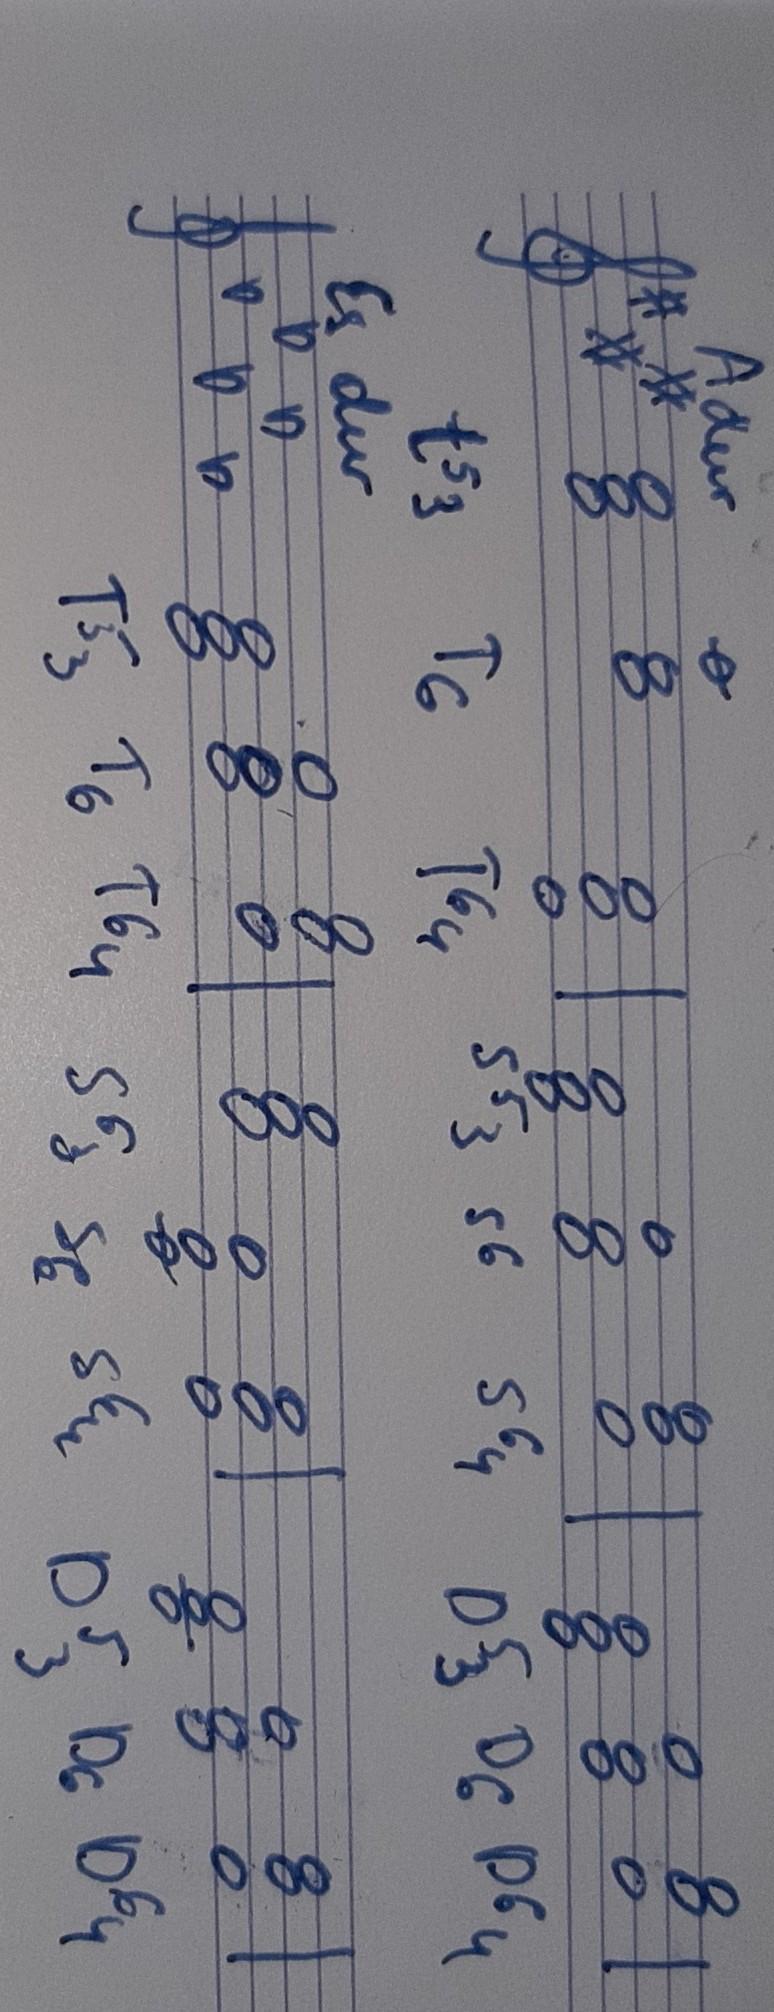 A dur
t53 T6 T64 S53 S6 S64 D53 D6 D64
Es dur
T53 T6 T64 S63 S6 S64 D53 D6 D64